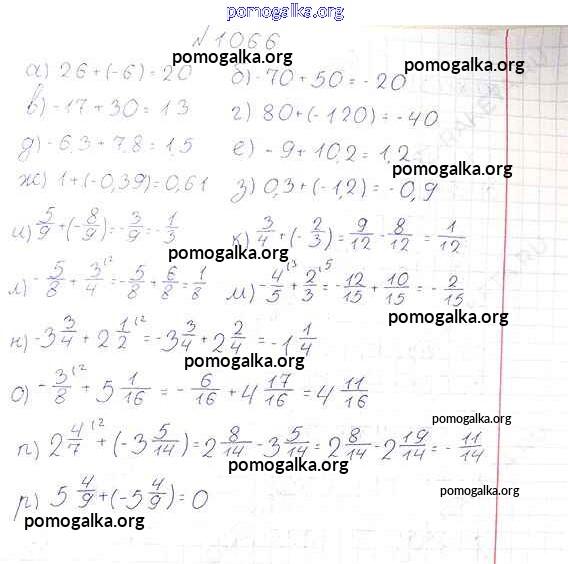 pomogalka.org
№1066
pomogalka.org pomogalka.org
а) 26+(-6)=20 б) -70+50=-20
в) -17+30=13 г) 80+(-120)=-40
pomogalka.org
д) -6,3+7,8=1,5 е) -9+10,2=1,2
pomogalka.org
ж) 1+(-0,39)=0,61 з) 0,3+(-1,2)=-0,9
и) 5/9+(-8/9)=-3/9=-1/3 к) 3/4+(-2/3)=9/12-8/12=1/12
pomogalka.org
л) -5/8+3/4^(2=-5/8+6/8=1/8 м) -4/5^(3+2/3^(5=-12/15+10/15=-2/15
pomogalka.org
н) -3 3/4+2 1/2^(2=-3 3/4+2 2/4=-1 1/4
pomogalka.org
о) -3/8^(2+5 1/16=-6/16+4 17/16=4 11/16
pomogalka.org
п) 2 4/7^(2+(-3 5/14)=2 8/14-3 5/14=2 8/14-2 19/14=-11/14
pomogalka.org
р) 5 4/9+(-5 4/9)=0
pomogalka.org
pomogalka.org